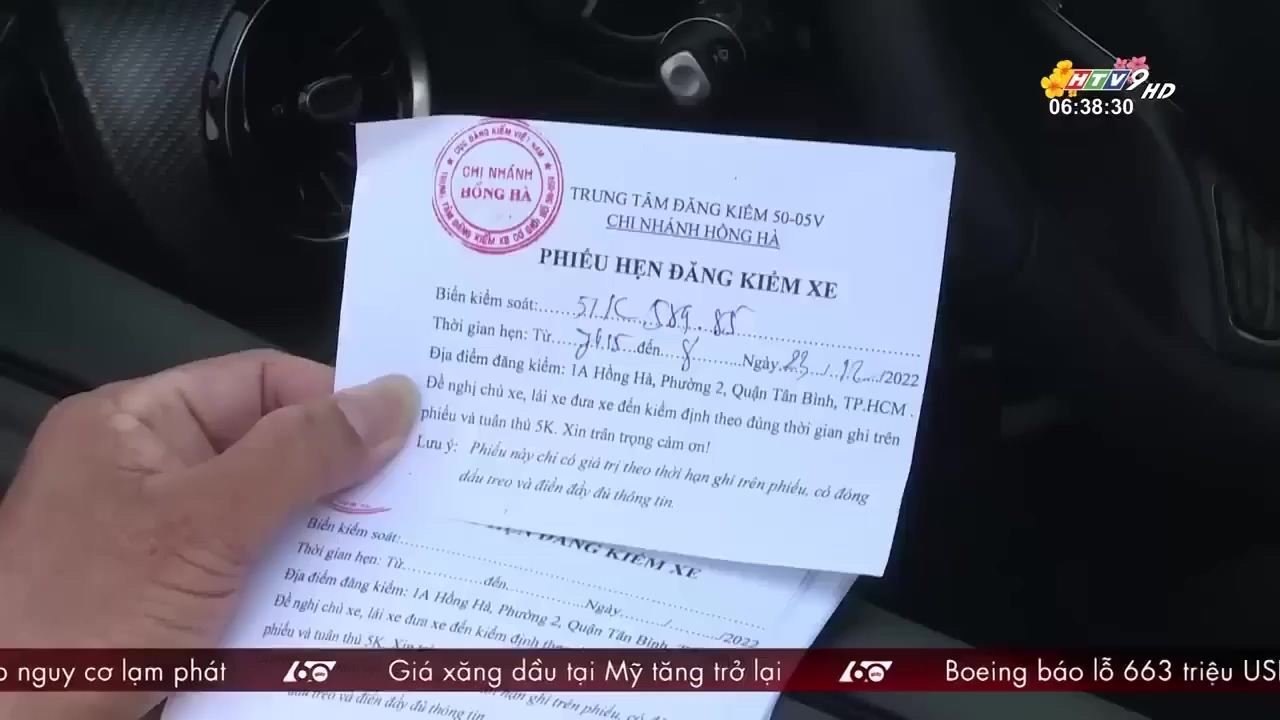 HTV9 HD
06:38:30
CỤC ĐĂNG KIỂM VIỆT NAM
CHI NHÁNH
HỒNG HÀ
TRUNG TÂM ĐĂNG KIỂM XE CƠ GIỚI
TRUNG TÂM ĐĂNG KIỂM 50-05V
CHI NHÁNH HỒNG HÀ
PHIẾU HẸN ĐĂNG KIỂM XE
Biển kiểm soát: 51C 589.85
Thời gian hẹn: Từ 7g15 đến 8 Ngày 23/12/2022
Địa điểm đăng kiểm: 1A Hồng Hà, Phường 2, Quận Tân Bình, TP.HCM .
Đề nghị chủ xe, lái xe đưa xe đến kiểm định theo đúng thời gian ghi trên
phiếu và tuân thủ 5K. Xin trân trọng cảm ơn!
Lưu ý: Phiếu này chỉ có giá trị theo thời hạn ghi trên phiếu, có đóng
dấu treo và điền đầy đủ thông tin.
HẸN ĐĂNG KIỂM XE
Biển kiểm soát:
Thời gian hẹn: Từ đến Ngày / /2022
Địa điểm đăng kiểm: 1A Hồng Hà, Phường 2, Quận Tân Bình
Đề nghị chủ xe, lái xe đưa xe đến kiểm định theo
phiếu và tuân thủ 5K. Xin
nguy cơ lạm phát 60 Giá xăng dầu tại Mỹ tăng trở lại 60 Boeing báo lỗ 663 triệu USD
dấu treo và điền đầy đủ thông tin.